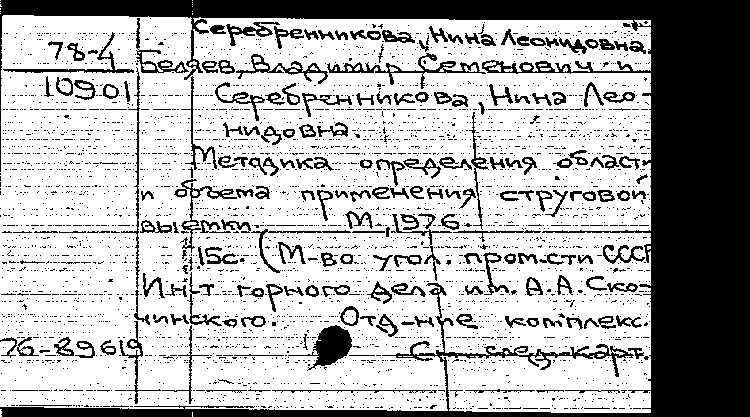 Серебренникова, Нина Леонидовна.
78-4
Беляев, Владимир Семенович и
10901
Серебренникова, Нина Лео-
нидовна.
Методика определения област
и объема применения струговой
выемки. М., 1976.
15с. (М-во угол. пром-сти СССР
Ин-т горного дела им. А.А.Ско-
чинского. Отд-ние комплекс.
76-89619
См. след. карт.